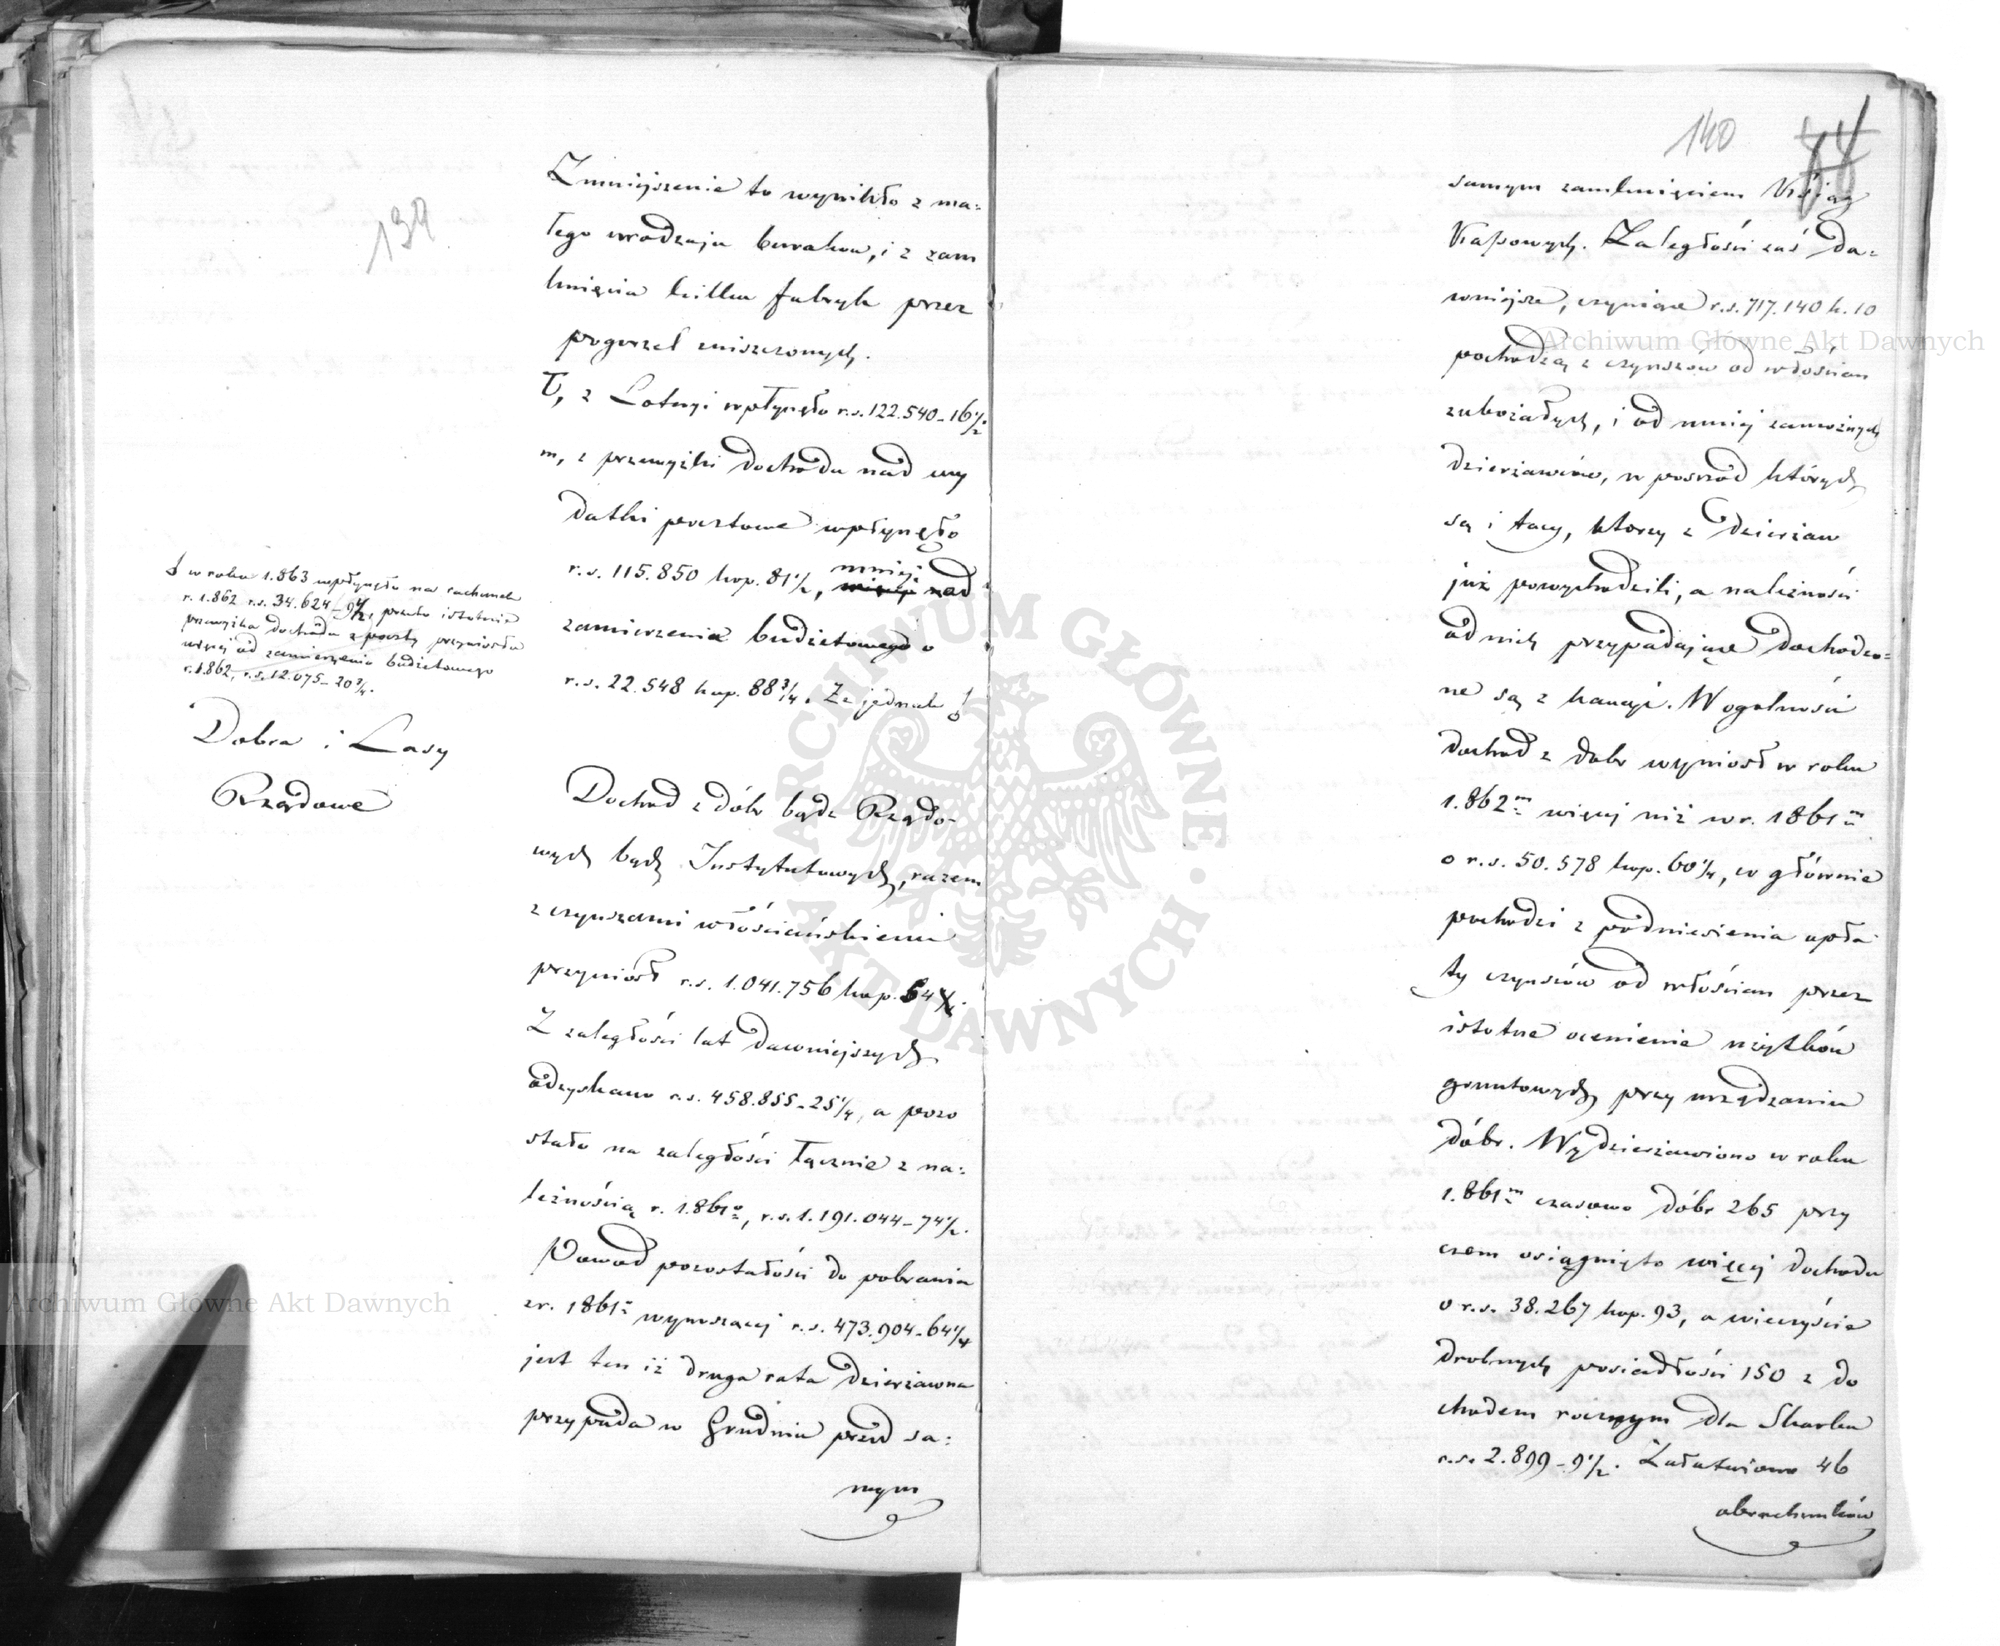 139
Zmniejszenie to wynikło z ma=
łego urodzaju buraków, i z zam
knięcia kilku fabryk przez
pogorzel zniszczonych.
ł, z Loteryi wpłynęło r.s. 122.540_16½.
m, z przewyżki dochodu nad wy
datki pocztowe wpłynęło
r.s. 115.850 kop. 81½, mniej nad
zamierzenia budżetowego o
r.s. 22.548 kop. 88¾. Że jednak
w roku 1.863 wpłynęło na rachunek
r. 1.862 r.s. 34.624_9½, przeto istotnie
przewyżka dochodu z poczty przyniosła
więcej od zamierzenia budżetowego
r. 1.862, r.s. 12.075_20¾.
Dobra i Lasy
Rządowe
Dochód z dóbr bądź Rządo-
wych bądź Instytutowych, razem
z czynszami włościańskiemi
przyniósł r.s. 1.041.756 kop. 64
Z zaległości lat dawniejszych
odzyskano r.s. 458.855_25¼, a pozo
stało na zaległości łącznie z na=
leżnością r. 1.861º, r.s. 1.191.044_74½.
Powód pozostałości do pobrania
z r. 1861º wynoszącej r.s. 473.904_64¼
jest ten iż druga rata dzierżawna
przypada w Grudniu przed sa=
mym
140
samym zamknięciem Ksiąg
Kassowych. Zaległości zaś da=
wniejsze, czyniące r.s. 717.140 k. 10
pochodzą z czynszów od włościan
zubożałych, i od mniej zamożnych
dzierżawców, w pośród których
są i tacy, którzy z dzierżaw
już powychodzili, a należności
od nich przypadające dochodzo=
ne są z kaucyi. W ogólności
dochód z dóbr wyniósł w roku
1.862m więcej niż w r. 1861m
o r.s. 50.578 kop. 60¼, co głównie
pochodzi z podniesienia opła
ty czynszów od włościan przez
istotne ocenienie użytków
gruntowych przy urządzaniu
dóbr. Wydzierżawiono w roku
1.861m czasowo dóbr 265 przy
czem osiągnięto więcej dochodu
o r.s. 38.267 kop. 93, a wieczyście
drobnych posiadłości 150 z do
chodem rocznym dla Skarbu
r.s. 2.899_9½. Załatwiono 46
obrachunków
Archiwum Główne Akt Dawnych
Archiwum Główne Akt Dawnych
ARCHIWUM GŁÓWNE
AKT DAWNYCH